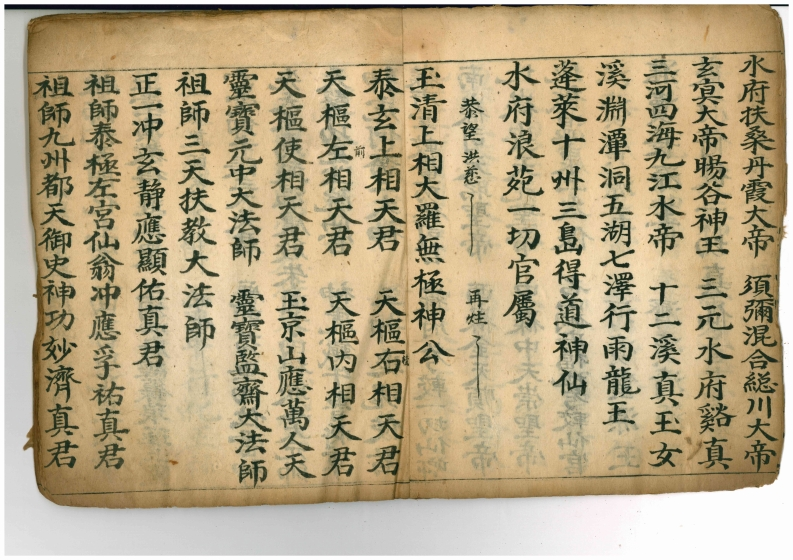 水府扶桑丹霞大帝　須彌混合総川大帝
玄㝠大帝暘谷神王　三元水府谿真
三河四海九江水帝　十二溪真玉女
溪淵潭洞五湖七澤行雨龍王
蓬萊十州三島得道神仙
水府浪苑一切官屬
恭望洪慈　再炷
玉清上相大羅無極神公
泰玄上相天君　天樞右相天君
前
天樞左相天君　天樞內相天君
天樞使相天君　玉京山應萬人天
靈寶元中大法師　靈寶監齋大法師
祖師三天扶教大法師
正一冲玄靜應顯佑真君
祖師泰極左宮仙翁冲應孚祐真君
祖師九州都天御史神功妙濟真君